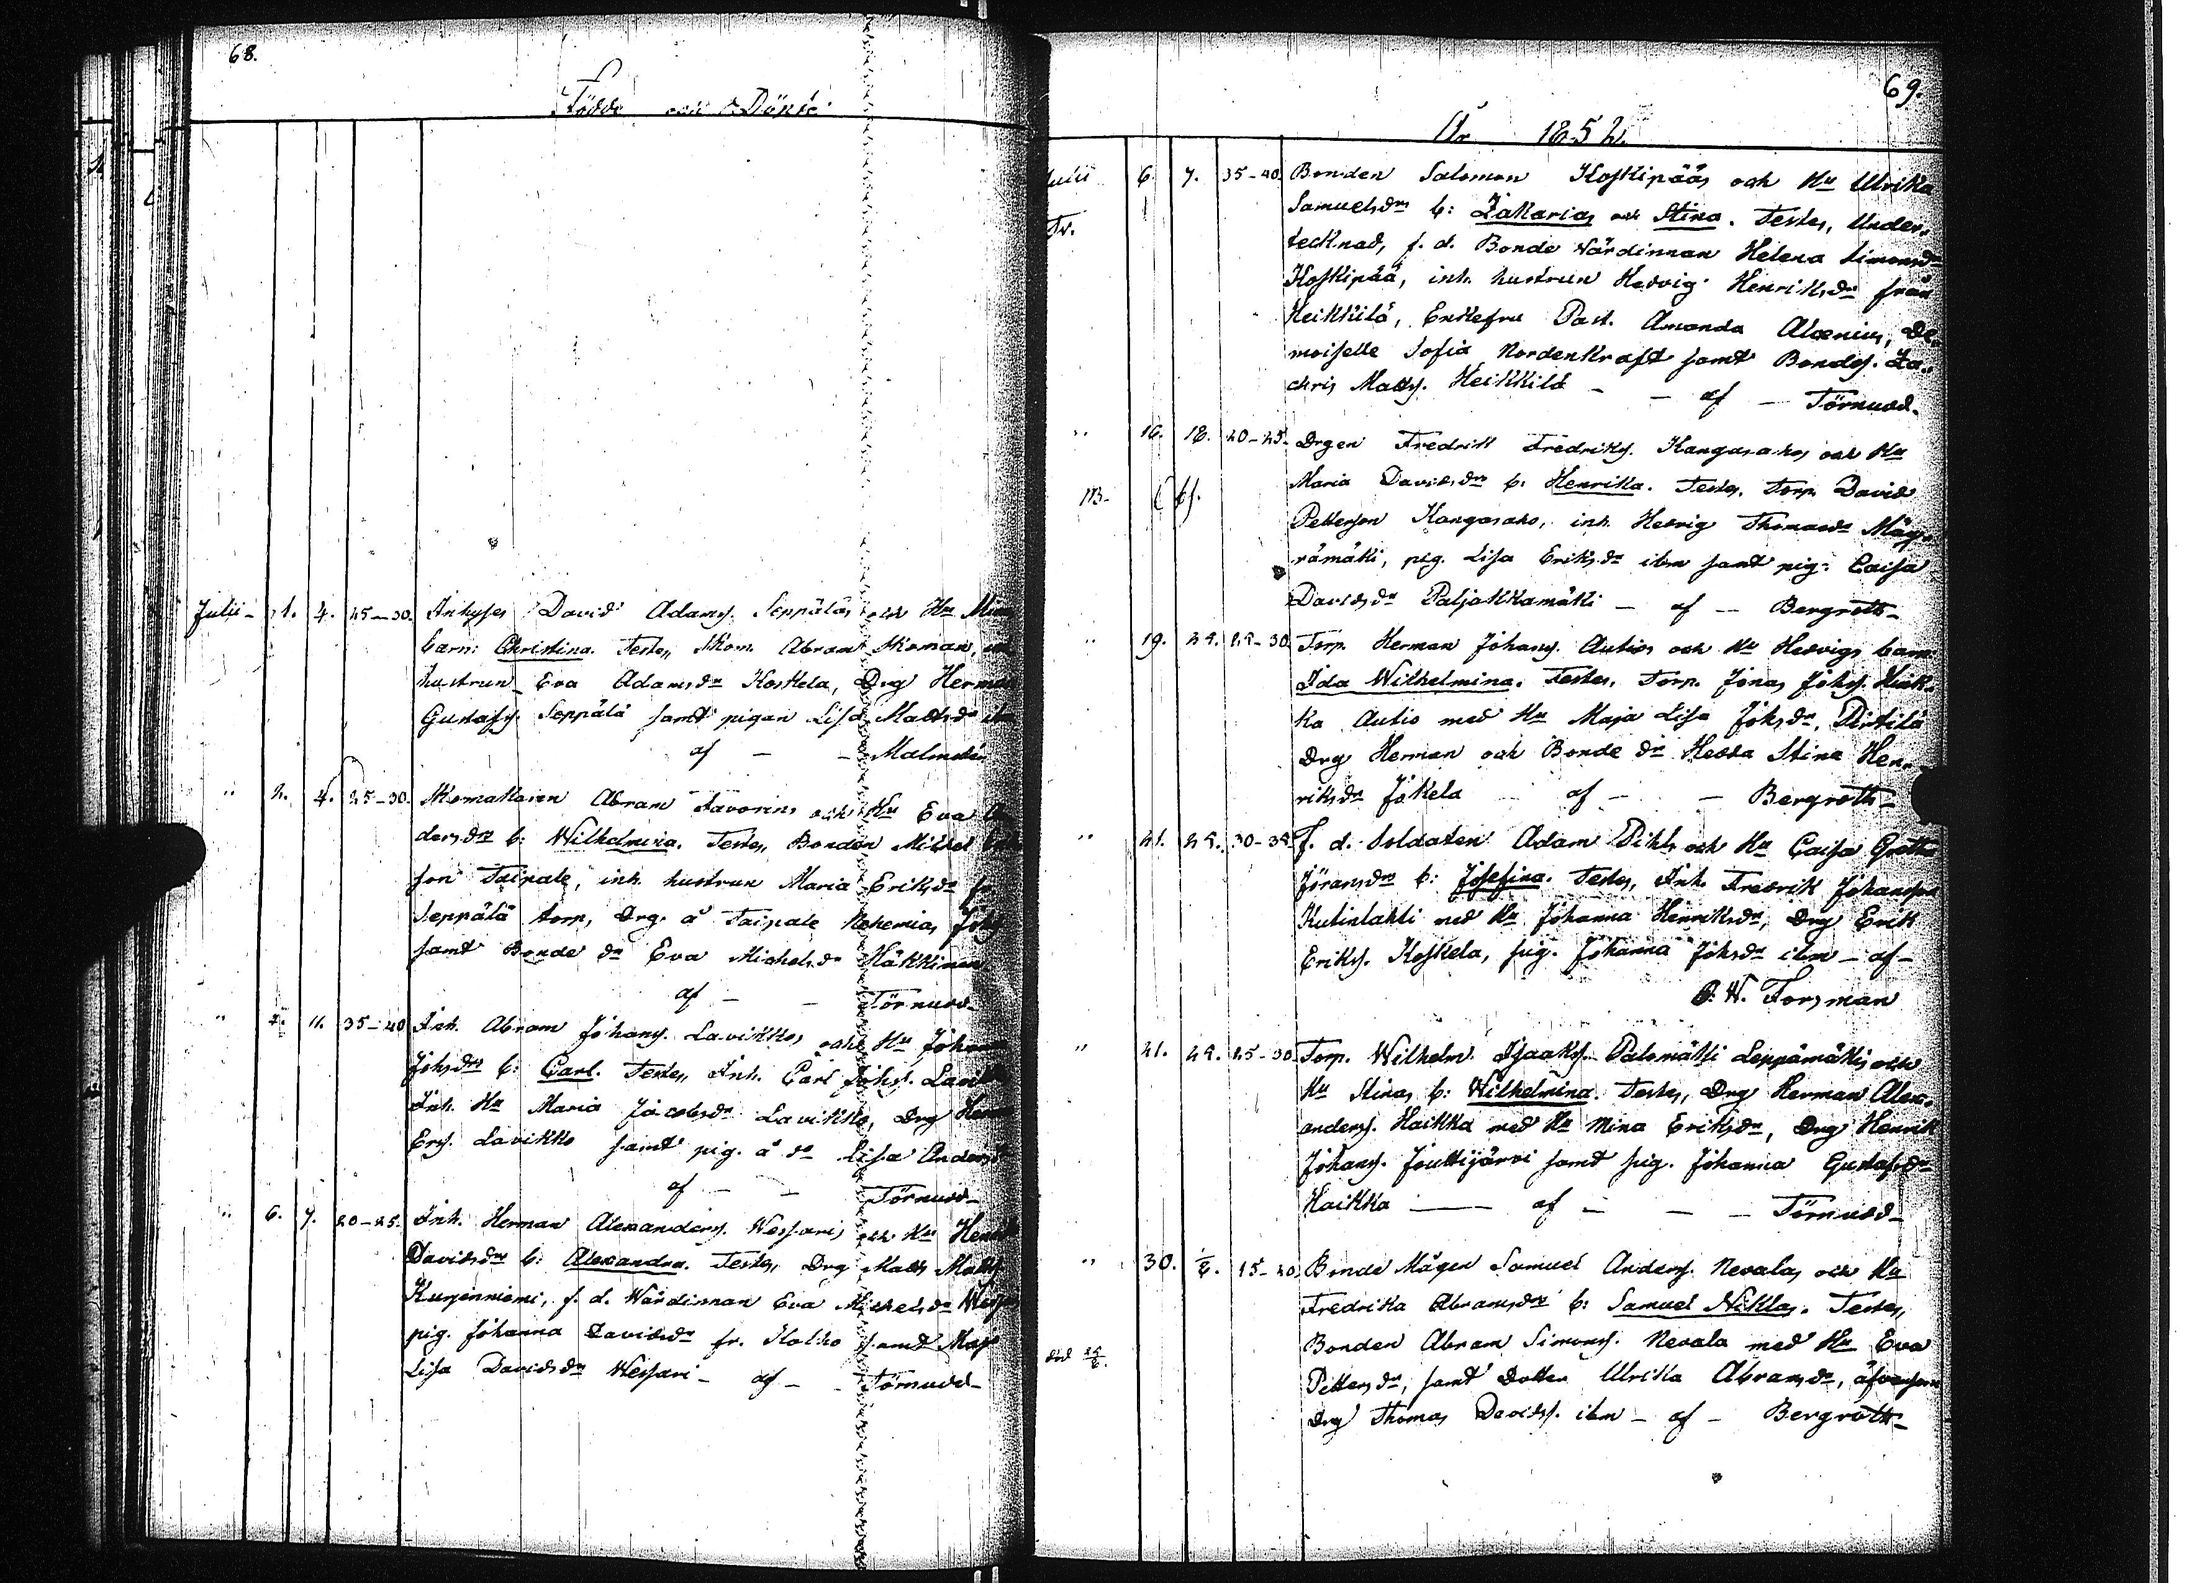 68.
Födde och Döpte
Julii - 1. 4. 25-30. Inhyses David Adamss. Seppäläs och Hu Mina
barn: Christina. Testes, Skom. Abram
hustrun Eva Adamsdr Koskela, Drg Herman
Gustafss. Seppälä samt pigan Lisa Mattsdr ibm
af - - Malmsten
" 2. 4. 25-30. Skomakaren Abram Favorins och Hu Eva
dersdrs b: Wilhelmina. Testes, Bonden Mickel
son Taipale, inh. hustrun Maria Eriksdr fr.
Seppälä torp, Drg. å Taipale Nehemias Johss
samt Bonde dr Eva Michelsdr Häkkinen
af - - Törnudd-
" 11. 35-40 Inh. Abram Johanss. Lavikkos och Hu Johanna
Johsdrs b: Carl. Testes, Inh. Carl Johss. Lavikko
Inh. Hu Maria Jacobsdr Lavikko, Drg
Ers. Lavikko samt pig. a dr Lisa Andersdr
af - - Törnudd-
" 6. 7. 20-25. Inh. Herman Alexanderss. Wessaris och Hu
Davidsdrs b: Alexandra. Testes, Drg Matts Mattss
Kurjenniemi, f. d. Wärdinnan Eva Michelsdr
pig. Johanna Davidsdr fr. Kolho samt Maj
Lisa Davidsdr Wessari - af - - Törnudd-
69.
År 1852.
Julii 6. 7. 35-40. Bonden Salomon Koskipääs och Hu Ulrika
Samuelsdrs b: Zakarias och Stina. Testes, Under-
Tv.
tecknad, f. d. Bonde Wärdinnan Helena Simonsdr
Koskipää, inh. hustrun Hedvig Henriksdr från
Heikkilä, Enkefru Past. Amanda Alcenius, De-
moiselle Sofia Nordenkraft samt Bondes. Za-
chris Matts. Heikkilä - - af - Törnudd-
" 16. 18. 20-25. Drgen Fredrik Fredrikss. Kangasahos och Hu
Maria Davidsdrs b: Henrika. Testes, Torp. David
Petterson Kangasaho, inh. Hedvig Thomasdr Mäy-
rämäki, pig. Lisa Eriksdr ibm samt pig. Caisa
Davidsdr Paljakkamäki - af - Bergroth-
" 19. 24. 25-30 Torp. Herman Johanss. Autios och Hu Hedvigs barn
Ida Wilhelmina. Testes, Torp. Jonas Johss. Haik-
ka Autio med Hu Maja Lisa Johsdr, Pirtilä
Drg Herman och Bonde dr Hedda Stina Hen-
riksdr Jokela af - - Bergroth-
" 21. 25. 30-35 F. d. Soldaten Adam Pihls och Hu Caisa Gretha
Jöransdrs b: Josefina. Testes, Inh. Fredrik Johansson
Kutinlahti med Hu Johanna Henriksdr, Drg Erik
Erikss. Koskela, pig. Johanna Johsdr ibm - af -
O. W. Forsman
" 21. 24. 25-30 Torp. Wilhelm Isaakss. Palomäki Leppämäkis och
Hu Stinas b: Wilhelmina. Testes, Drg Herman Alex-
anderss. Haikka med Hu Mina Eriksdr, Drg Henrik
Johanss. Jouttijärvi samt pig. Johanna Gustafsdr
Haikka - af - - - Törnudd-
" 30. 15-20 Bonde Mågen Samuel Anderss. Nevalas och Hu
Fredrika Abramsdrs b: Samuel Niklas. Testes,
Bonden Abram Simonss. Nevala med Hu Eva
Pettersdr, samt Dotter Ulrika Abramsdr, äfvensom
Drg Thomas Davidss. ibm - af - Bergroth-